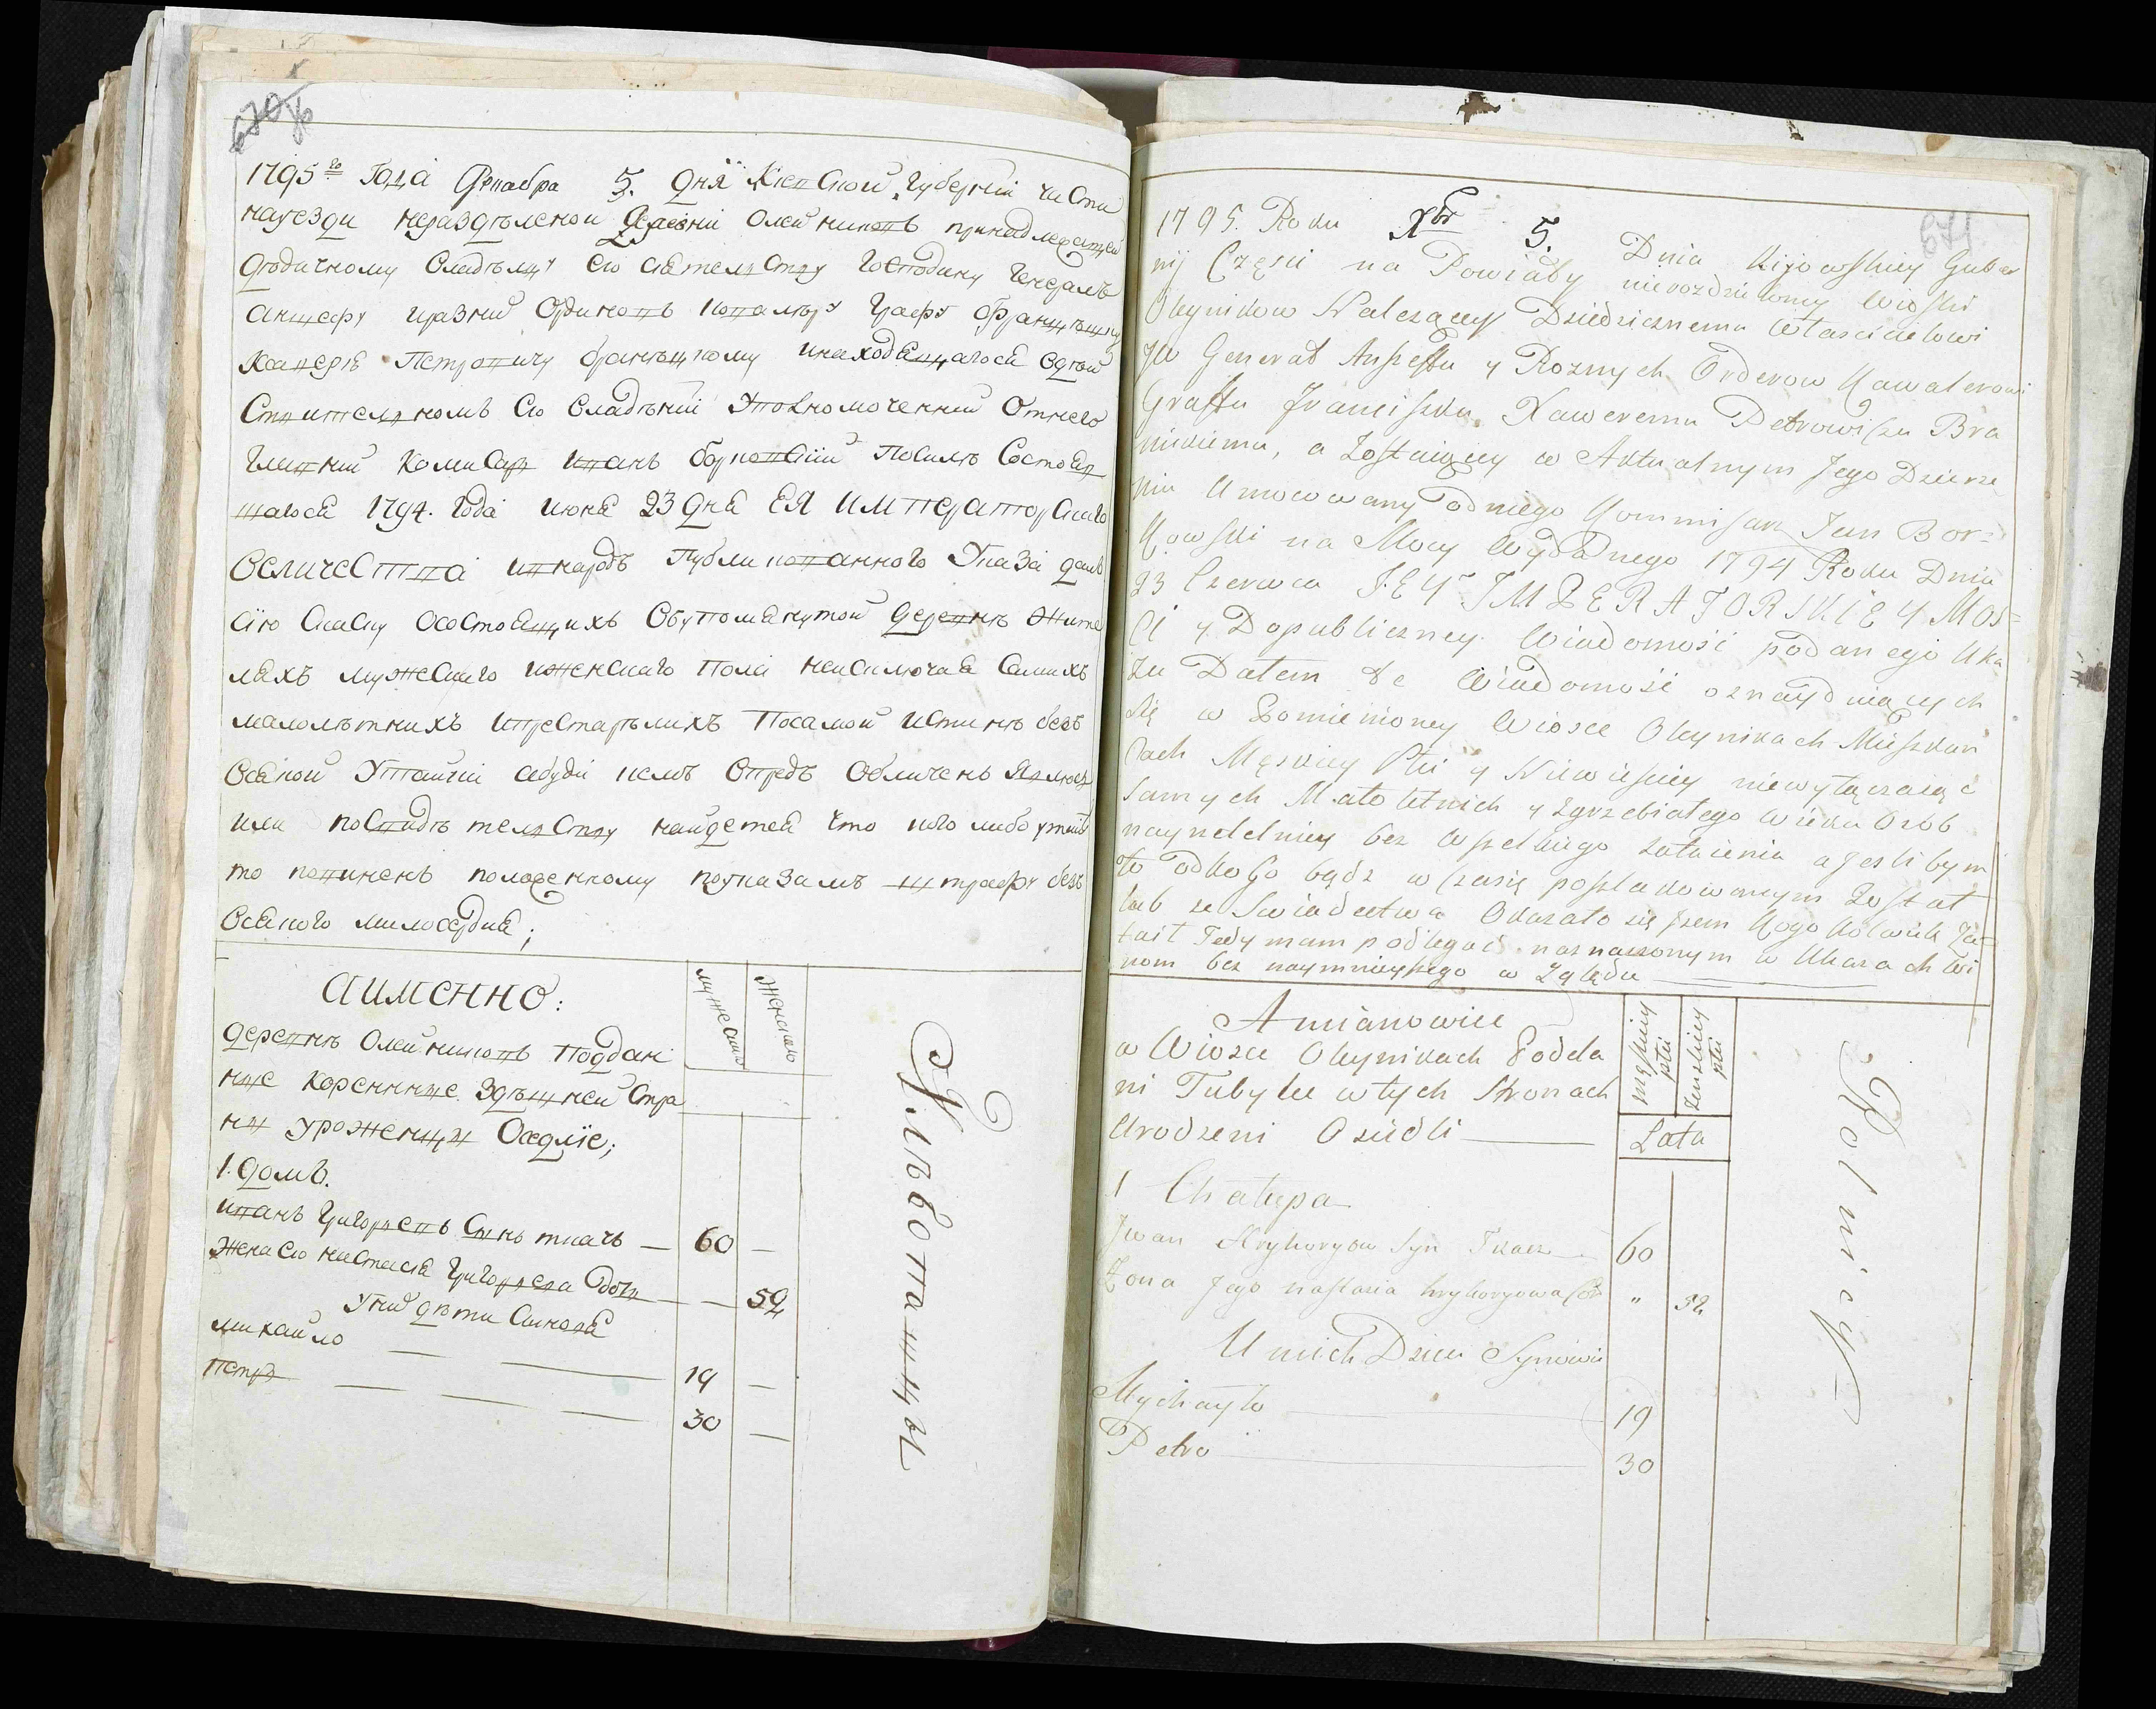 670
1795го Года Декабра 5. Дня Кіевской губерній части
науезди нераздѣленои Деревнй Олейниковъ принадлежащей
Дѣдичному Владѣлцу его сіятелству Господину Генералъ
Аншефу иразнихъ Ординовъ Кавалѣру Графу Францѣшку
Ксаверію Петровичу браницкому инаходящагося вдѣй
ствителномъ его владѣніи Уполномоченний Отнего
Главний Комисаръ иванъ борковскій Посилѣ Состояв
шагося 1794. Года июня 23 Дня ЕЯ ИМПЕРАТОРСкого
ВЕЛИЧЕСТВА ивнародъ Публикованного Указа далъ
сію Скаску осостоящихъ Вбупомянутой деревнѣ Жите
ляхъ мужескаго иженскаго пола неисключая самихъ
малолѣтнихъ ипрестарѣлихъ посамой истинѣ безъ
всякой Утайки абуди кемъ впредъ Обличенъ Явлюсь
или посвидѣтелству найдется что кого либо утаилъ
то повиненъ положенному поуказамъ штрафу безъ
всякого милосердия;
АИМЕННО:
мужеска
женска
деревнѣ Олейниковъ Поддан
ние коренние здѣшней стра
ни уроженци Оседліе;
1. домъ.
иванъ Григорьевъ Синъ ткачъ — 60 —
жена его настася Григорьева Дочь — — 52
Унихъ дѣти Синовя
михаило 19 —
петръ 30 —
Хлѣбопашци
671
1795. Roku Xbr 5. Dnia Kijowskiey Guber
nij Części na Powiaty nierozdzieloney Wioski
Oleynikow Nalezącey Dziedzicznemu Włascicielowi
JW Generał Anszeffu y Roznych Orderow Kawalerowi
Graffu Franciszku Xaweremu Petrowiczu Bra
nickiemu, a Zostaiącey w Aktualnym Jego Dzierze
niu Umocowany odniego Kommisarz Jan Bor=
kowski na Mocy Wydanego 1794 Roku Dnia
23 Czerwca JEY IMPERATORSKIEY MOS=
CI y Dopubliczney Wiadomości podanego Uka
zu Datem te Wiadomość oznayduiących
się w Pomienioney Wiosce Oleynikach Mieszkań
cach Męskiey Płci y Niewieściey niewyłączaiąc
samych Małoletnich y Zgrzebiałego Wieku Osob
nayrzetelniey bez Wszelkiego Zataienia a Jeslibym
to odkogo bądz w Czasię poszlakowanym Został
lub ze Swiadectwa Okazało się żem Kogo Kolwiek Za=
taił Tedy mam podlegać naznaczonym w Ukazach Wi
nom bez naymnieyszego w Zględu
Amianowicie
męskiey płci
żenskiey płci
w Wiosce Oleynikach Podda
ni Tubylcy w tych Stronach
Urodzeni Osiedli
Lata
1 Chałupa
Jwan Hryhorysw Syn Tkacz 60
Żona Jego nastasia hryhorysowa " 52
U nich Dzieci Synowie
Mychayło 19
Petro 30
Rolnicy